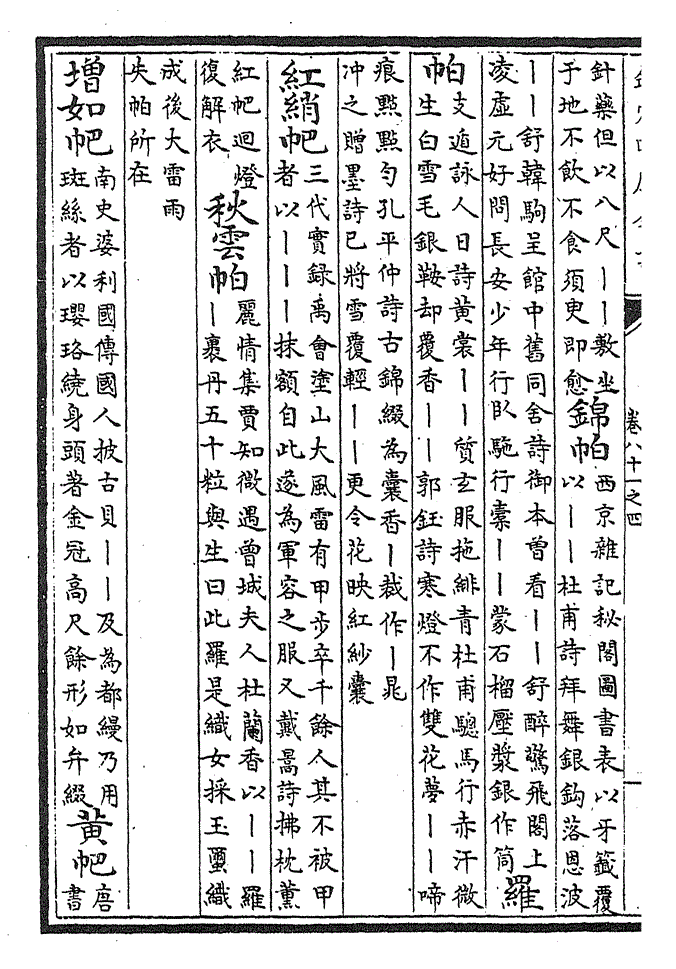 卷八十一之四
針藥但以八尺丨丨敷坐
于地不飲不食須臾即愈
錦帕
西京雜記秘閣圖書表以牙籖覆
以丨丨杜甫詩拜舞銀鈎落恩波
丨丨舒韓駒呈館中舊同舍詩御本曽看丨丨舒醉驚飛閣上
凌虛元好問長安少年行臥駞行槖丨丨蒙石榴壓漿銀作筒
羅
帕
支遁詠人日詩黃裳丨丨質玄服拖緋青杜甫驄馬行赤汗微
生白雪毛銀鞍却覆香丨丨郭鈺詩寒燈不作雙花夢丨丨啼
痕點點勻孔平仲詩古錦綴為囊香丨裁作丨晁
冲之贈墨詩已將雪覆輕丨丨更令花映紅紗囊
紅綃帊
三代實録禹會塗山大風雷有甲步卒千餘人其不被甲
者以丨丨丨抹額自此遂為軍容之服又戴暠詩拂枕薰
紅帊迴燈
復解衣
秋雲帕
麗情集賈知微遇曾城夫人杜蘭香以丨丨羅
丨裹丹五十粒與生曰此羅是織女採玉蠒織
成後大雷雨
失帕所在
増如帊
南史婆利國傳國人披古貝丨丨及為都縵乃用
斑絲者以瓔珞繞身頭著金冠高尺餘形如弁綴
黃帊
唐
書